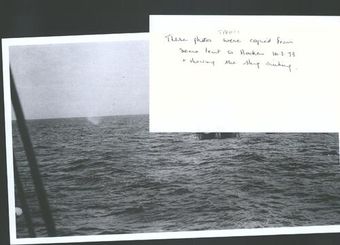 These photos were copied from
some lent to Hocken 16.2.78
+ showing the ship sinking.